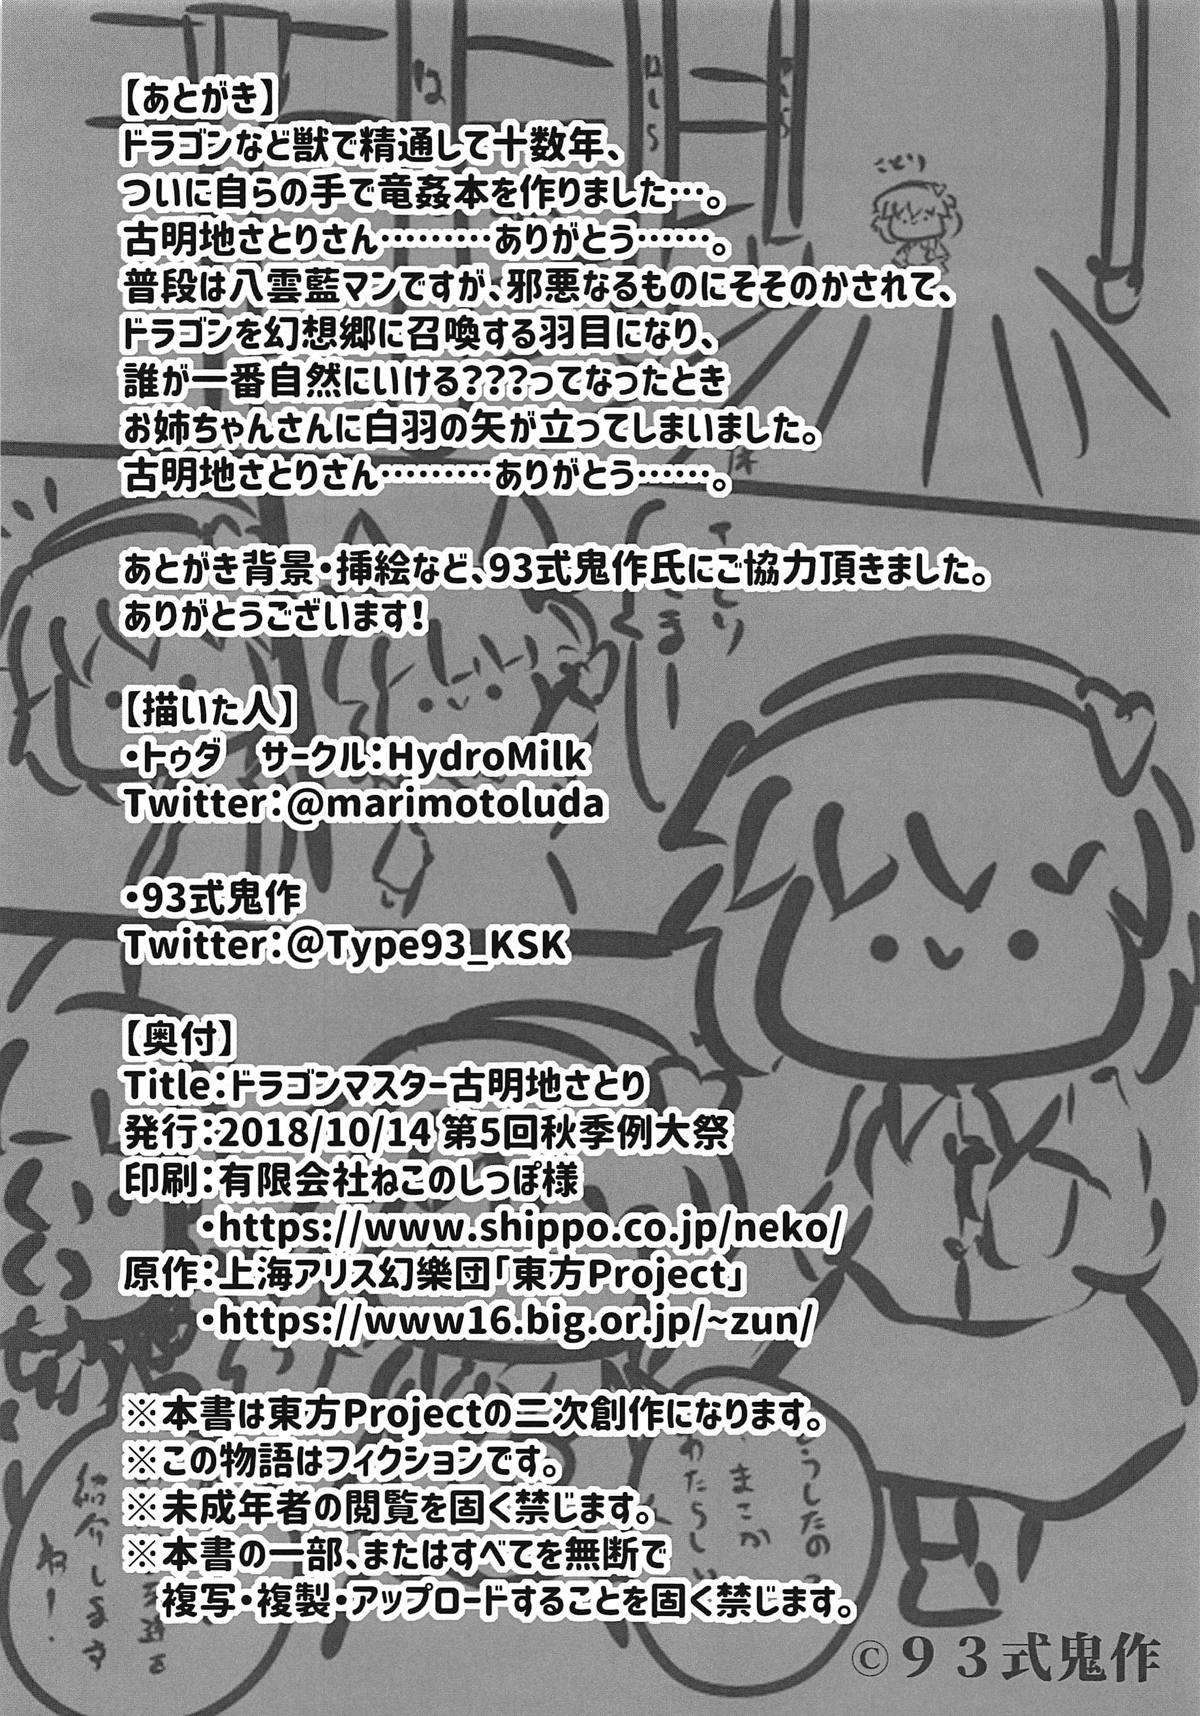 【あとがき】
ドラゴンなど獣で精通して十数年、
ついに自らの手で竜姦本を作りました…。
古明地さとりさん………ありがとう……。
普段は八雲藍マンですが、邪悪なるものにそそのかされて、
ドラゴンを幻想郷に召喚する羽目になり、
誰が一番自然にいける???ってなったとき
お姉ちゃんさんに白羽の矢が立ってしまいました。
古明地さとりさん………ありがとう……。
あとがき背景・挿絵など、93式鬼作氏にご協力頂きました。
ありがとうございます!
【描いた人】
・トゥダ　サークル:HydroMilk
Twitter:@marimotoluda
・93式鬼作
Twitter:@Type93_KSK
【奥付】
Title:ドラゴンマスター古明地さとり
発行:2018/10/14 第5回秋季例大祭
印刷:有限会社ねこのしっぽ様
・https://www.shippo.co.jp/neko/
原作:上海アリス幻樂団「東方Project」
・https://www16.big.or.jp/~zun/
※本書は東方Projectの二次創作になります。
※この物語はフィクションです。
※未成年者の閲覧を固く禁じます。
※本書の一部、またはすべてを無断で
複写・複製・アップロードすることを固く禁じます。
©93式鬼作
はしら
さとり
床
紹介します
ね!